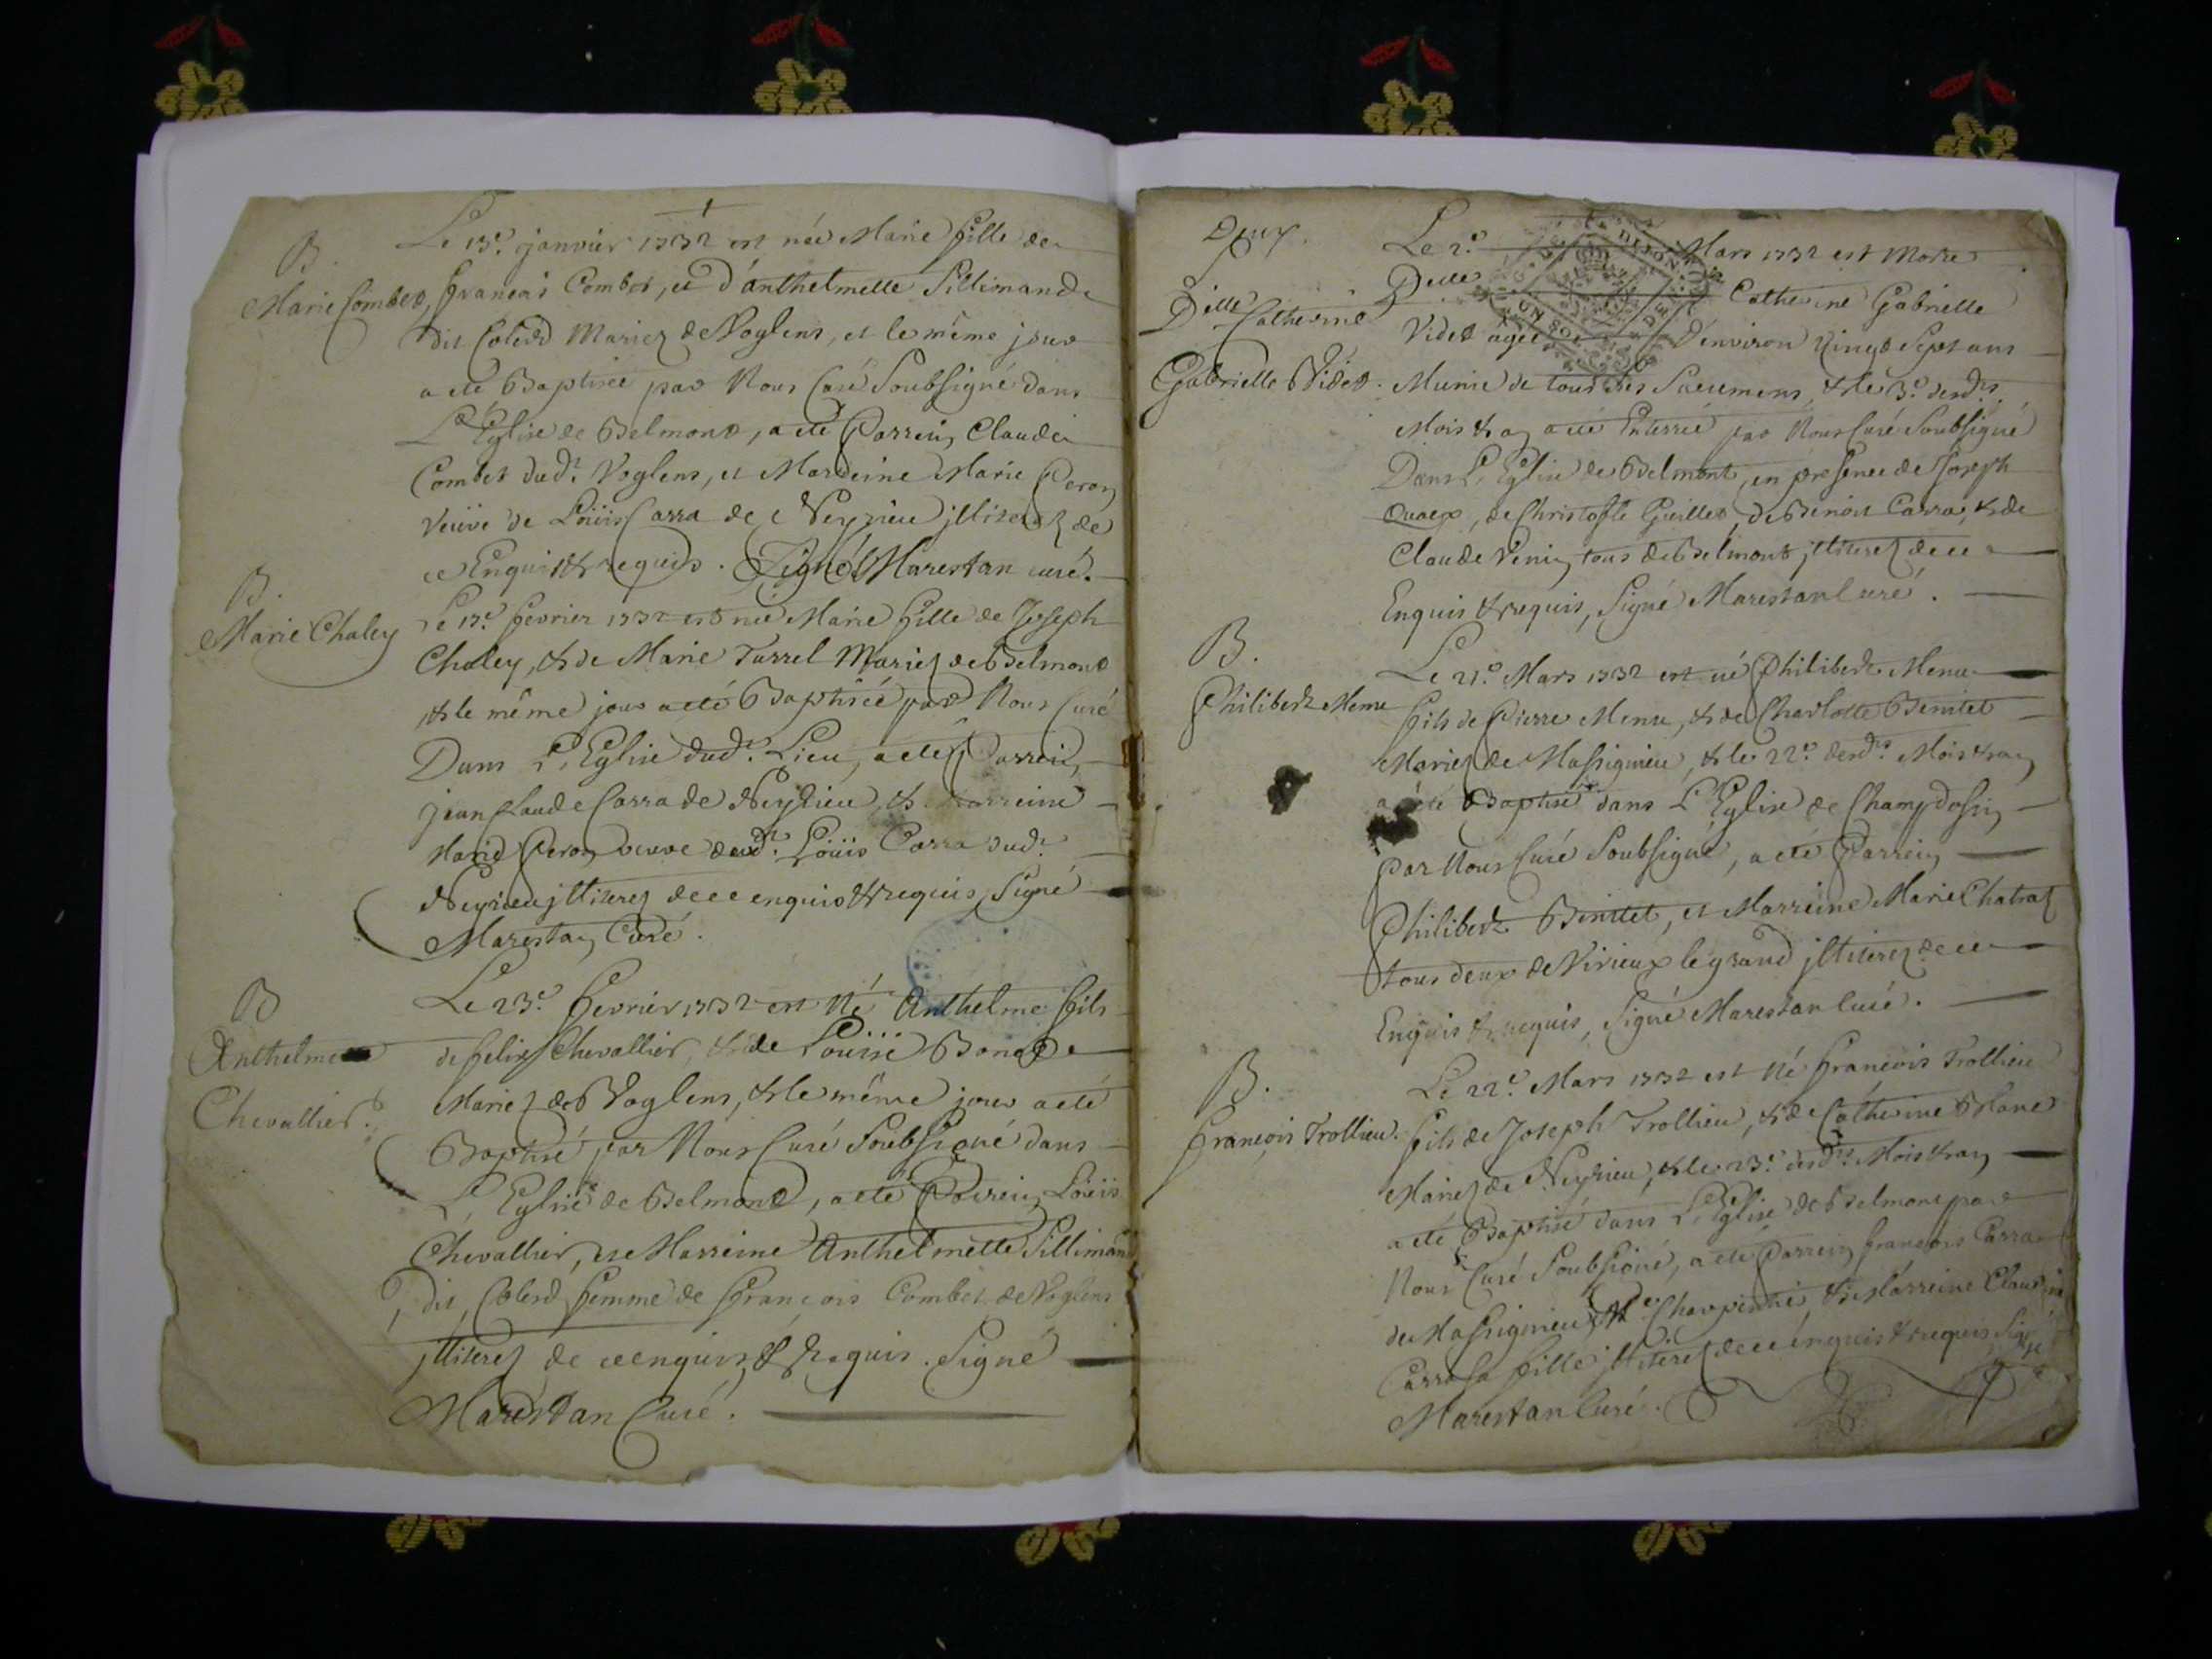 B.
Marie Combet,
Le 13e. janvier 1732 est née Marie fille de
françois Combet, et d'anthelmette Sillimand
dit Colerd Mariez de Voglens, et le même jour
a eté Baptisée par Nous Curé Soubsigné dans
L'Eglise de Belmont, a eté Parrein Claude
Combet dudt. Voglens, et Marreine Marie Peron
veüve de Loüis Carra de Neyrieu jlliterez de
ce Enquis & requis. Signé Marestan curé.
B.
Marie Chaley
Le 17e. fevrier 1732 est née Marie fille de Joseph
Chaley, & de Marie Turrel Mariez de Belmont
& le même jour a eté Baptisée par Nous Curé
Dans L'Eglise dudt. Lieu, a eté Parrein,
jean Claude Carra de Neyrieu, & Marreine
Marie Peron veuve dudt. Loüis Carra dudt.
Neyrieu jlliterez de ce enquis & requis, Signé
Marestan Curé.
B
Anthelme
Chevallier.
Le 23e. fevrier 1732 est Né Anthelme fils
de felix Chevallier, & de Loüise
Mariez de Voglens, & le même jour a eté
Baptisé par Nous Curé Soubsigné dans
L'Eglise de Belmont, a eté Parrein Loüis
Chevallier, et Marreine Anthelmette Sillimand
dit Colerd femme de François Combet de Voglens
jlliterez de ce enquis, & Requis. Signé
Marestan Curé.
Deux.
Dlle Catherine
Gabrielle Videt.
Le 2e. Mars 1732 est Morte
Delle Catherine Gabrielle
Videt agée D'environ Vingt Sept ans
Munie de tous Ses Sacremens, & le 3e. desdts.
Mois & an a eté Enterrée par Nous Curé Soubsigné
Dans L'Eglise de Belmont, en presence de Joseph
, de Christofle Guillet, de Benoit Carra, & de
Claude Venin tous de Belmont jlliterez de ce
Enquis & requis, Signé Marestan Curé.
B.
Philibert Menu
Le 21e. Mars 1732 est né Philibert Menu
fils de Pierre Menu, & de Charlotte Benitet
Mariez de Massignieu, & le 22e. desdts. Mois & an
a eté Baptisé dans L'Eglise de Champdossin
par Nous Curé Soubsigné, a eté Parrein
Philibert Benitet, et Marreine Marie Chatral
tous deux de Virieux le grand jlliterez de ce
Enquis & requis, Signé Marestan Curé.
B.
françois Trollieu.
Le 22e. Mars 1732 est Né françois Trollieu
fils de Joseph Trollieu, & de Catherine Blanc
Mariez de Neyrieu, & le 23e. desdts. Mois & an
a eté Baptisé dans L'Eglise de Belmont par
Nous Curé Soubsigné, a eté Parrein françois Carra
de Massignieu Me. Charpentié, & Marreine Claudine
Carra sa fille jlliterez de ce enquis & requis, Signé
Marestan Curé.